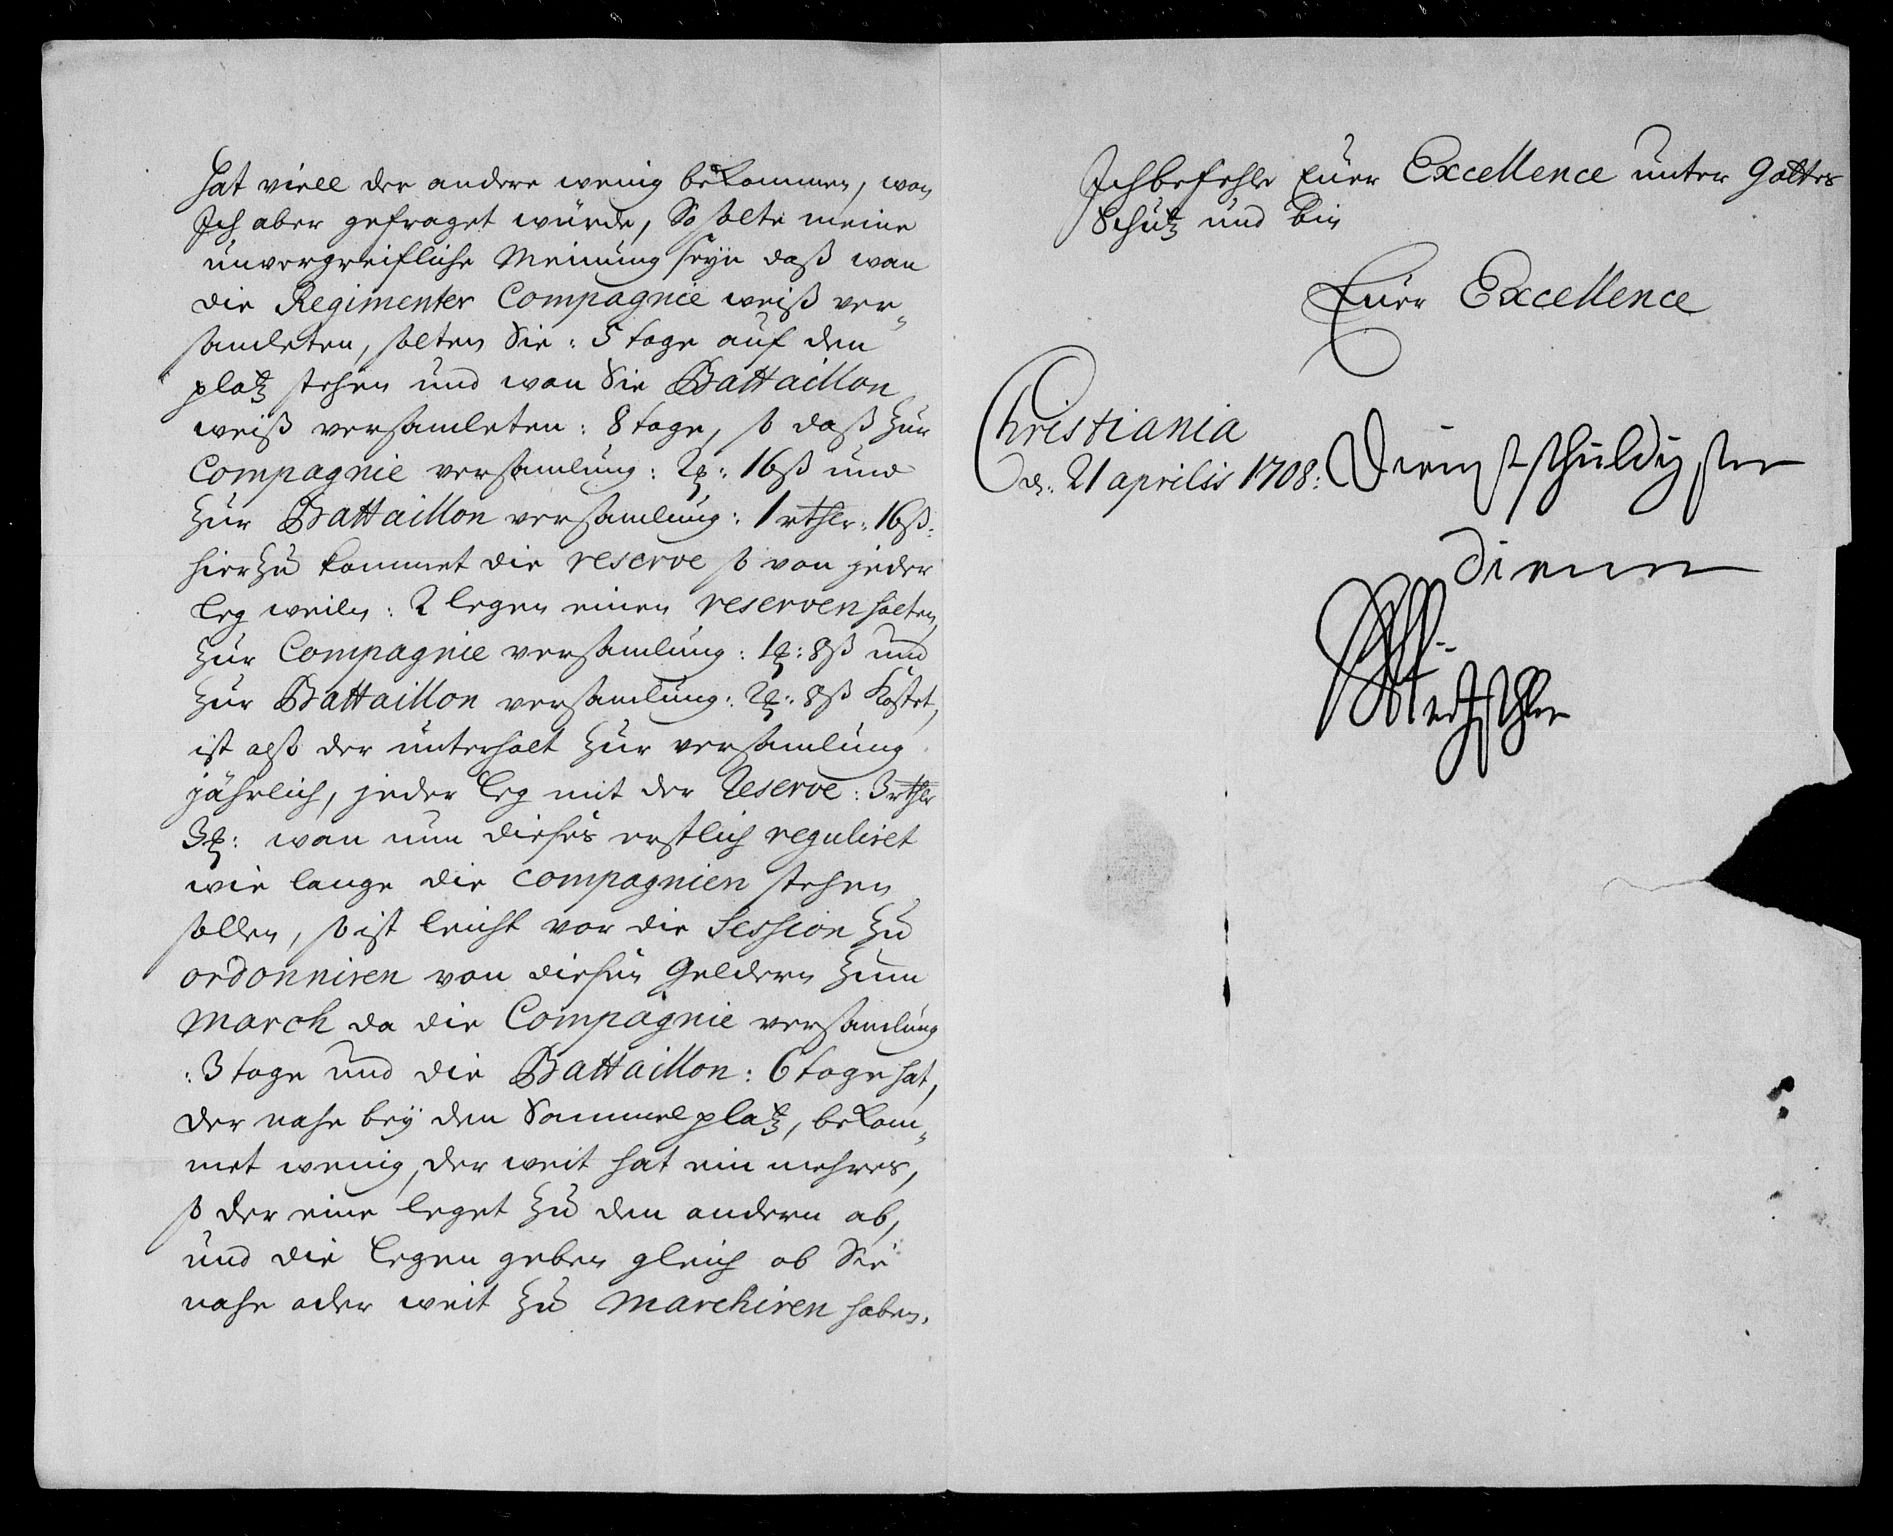 hat viell der andere wenig bekommen, wan
Ich aber gefraget würde, So solte meine
unvorgreifliche Meinung seyn daß wan
die Regimenter Compagnie weiß ver„
samleten, solten Sie: 5 tage auf den
platz stehen und wan Sie Battaillon
weiß versamleten: 8 tage, so daß zur
Compagnie versamlung: 2 : 16ß und
zur Battaillon versamlung: 1 rthlr: 16ß:
hierzu kommet die reserve so von jeder
leg weiln: 2 legen einen reserven halten,
zur Compagnie versamlung: 1 : 8ß und
zur Battaillon versamlung: 2 : 8ß Kostet,
ist also der unterhalt zur versamlung
jährlich, jeder leg mit der Reserve: 3 rthlr
3 : wan nun dieses erstlich reguliret
wie lange die compagnien stehen
sollen, so ist leicht vor die Session zu
ordonniren von diesen Geldern zum
March da die Compagnie versamlung
: 3 tage und die Battaillon: 6 tage hat,
der nahe bey den Sammelplatz, bekom„
met wenig, der weit hat ein mehres,
so der eine leget zu den andern ab,
und die legen geben gleich ob Sie
nahe oder weit zu marchiren haben.
Ich befehle Euer Excellence unter Gottes
Schutz und bin
Euer Excellence
Christiania
d: 21 aprilis 1708:
Dienstschuldigster
diener